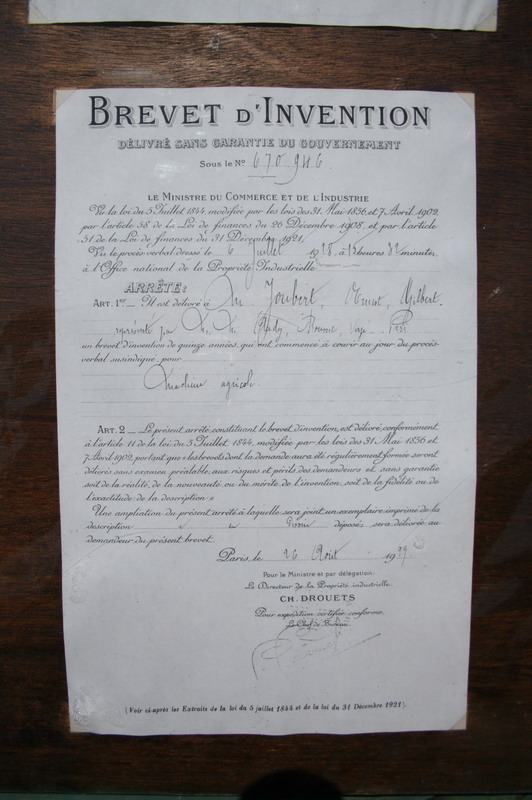 BREVET D'INVENTION
DÉLIVRÉ SANS GARANTIE DU GOUVERNEMENT
Sous le No 670.946
LE MINISTRE DU COMMERCE ET DE L'INDUSTRIE
Vu la loi du 5 Juillet 1844, modifiée par les lois des 31 Mai 1856, et 7 Avril 1902,
par l'article 58 de la Loi de finances du 26 Décembre 1908, et par l'article
51 de la Loi de finances du 31 Décembre 1921,
Vu le procès-verbal dressé le 6 Juillet 1928, à 15 heures 32 minutes,
à l'Office national de la Propriété Industrielle
ARRÊTE:
ART. 1er _ Il est délivré à Mr Joubert, Ernest, Gilbert.
représenté par
un brevet d'invention de quinze années, qui ont commencé à courir au jour du procès-
verbal susindiqué, pour
Machine agricole.
ART. 2 _ Le présent arrêté, constituant le brevet d'invention, est délivré, conformément
à l'article 11 de la loi du 5 Juillet 1844, modifiée par les lois des 31 Mai 1856 et
7 Avril 1902, portant que «les brevets dont la demande aura été régulièrement formée seront
délivrés sans examen préalable, aux risques et périls des demandeurs et sans garantie
soit de la réalité, de la nouveauté ou du mérite de l'invention, soit de la fidélité ou de
l'exactitude de la description»
Une ampliation du présent arrêté à laquelle sera joint un exemplaire imprimé de la
description déposés sera délivrée au
demandeur du présent brevet.
Paris, le 26 Août 1929.
Pour le Ministre et par délégation:
Le Directeur de la Propriété industrielle.
CH. DROUETS
Pour expédition certifiée conforme.
Le Chef de Bureau
(Voir ci-après les Extraits de la loi du 5 juillet 1844 et de la loi du 31 Décembre 1921)